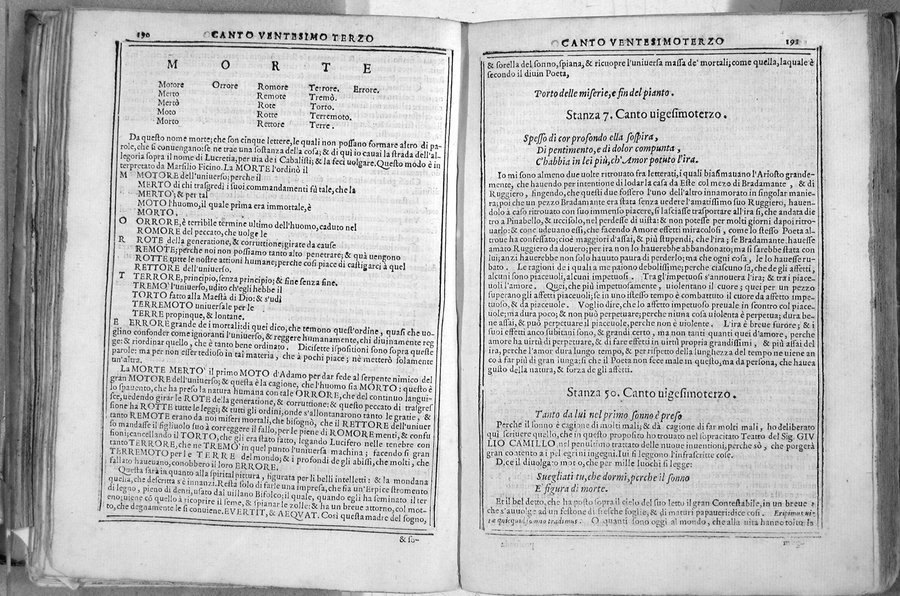 190 CANTO VENTESIMO TERZO
M O R T E
Motore Orrore Romore Terrore. Errore.
Merto Remote Tremò.
Mertò Rote Torto.
Moto Rotte Terremoto.
Morto Rettore Terre.
Da questo nome morte; che son cinque lettere, le quali non possano formare altro di pa-
role, che si conuengano: se ne trae una sostanza della cosa; & di quì io cauai la strada dell'al-
legoria sopra il nome di Lucretia, per uia de i Cabalisti; & la feci uolgare. Questo modo è in
terpretato da Marsilio Ficino. La MORTE l'ordinò il
M MOTORE dell'uniuerso; perche il
MERTO di chi trasgredì i suoi commandamenti fù tale, che la
MERTO'; & per tal
MOTO l'huomo, il quale prima era immortale, è
MORTO.
O ORRORE, è terribile termine ultimo dell'huomo, caduto nel
ROMORE del peccato, che uolge le
R ROTE della generatione, & corruttione; girate da cause
REMOTE; perche noi non possiamo tanto alto penetrare; & quà uengono
ROTTE tutte le nostre attioni humane; perche così piace di castigarci à quel
RETTORE dell'uniuerso.
T TERRORE, principio, senza principio; & fine senza fine.
TREMO' l'uniuerso, udito ch'egli hebbe il
TORTO fatto alla Maestà di Dio: & s'udì
TERREMOTO uniuersale per le
TERRE propinque, & lontane.
E ERRORE grande de i mortali: di quei dico, che temono quest'ordine, quasi che uo-
glino confonder come ignoranti l'uniuerso, & reggere humanamente, chi diuinamente reg
ge: & riordinar quello, che è tanto bene ordinato. Dicisette ispositioni sono sopra queste
parole: ma per non esser tedioso in tal materia, che à pochi piace; nè metterò solamente
un'altra.
La MORTE MERTO' il primo MOTO d'Adamo per dar fede al serpente nimico del
gran MOTORE dell'uniuerso; & questa è la cagione, che l'huomo sia MORTO: questo è
lo spauento, che ha preso la natura humana con tale ORRORE, che del continuo langui-
sce, uedendo girar le ROTE della generatione, & corruttione: & questo peccato di trasgres
sione ha ROTTE tutte le leggi; & tutti gli ordini, onde s'allontanarono tanto le gratie, &
tanto REMOTE erano da noi miseri mortali, che bisognò, che il RETTORE dell'uniuer
so mandasse il figliuolo suo à correggere il fallo, per le piene di ROMORE menti, & confu
sioni; cancellando il TORTO, che gli era stato fatto, legando Lucifero nelle tenebre con
tanto TERRORE, che ne TREMO' in quel punto l'uniuersa machina; facendosi gran
TERREMOTO per le TERRE del mondo; & i profondi de gli abissi, che molti, che
fallato haueuano, conobbero il loro ERRORE.
Questa sarà in quanto alla spirital pittura, figurata per li belli intelletti: & la mondana
quella, che descritta s'è innanzi. Resta solo di farle una impresa, che sia un'Erpice stromento
di legno, pieno di denti, usato dal uillano Bifolco; il quale, quando egli ha seminato il ter
reno; uiene cò quello à ricoprire il seme, & spianar le zolle: & ha un breue attorno, col mot-
to, che degnamente le si conuiene. EVERTIT, & AEQVAT. Così questa madre del sogno,
& so-
CANTO VENTESIMOTERZO 191
& sorella del sonno, spiana, & ricuopre l'uniuersa massa de' mortali; come quella, laquale è
secondo il diuin Poeta,
Porto delle miserie, e fin del pianto.
Stanza 7. Canto uigesimoterzo.
Spesso di cor profondo ella sospira,
Di pentimento, e di dolor compunta,
C'habbia in lei più, ch' Amor potuto l'ira.
Io mi sono almeno due uolte ritrouato fra letterati, i quali biasimauano l'Ariosto grande-
mente, che hauendo per intentione di lodar la casa da Este col mezo di Bradamante, & di
Ruggiero, fingendo, che questi due fossero l'uno dell'altro innamorato in singolar manie-
ra; poi che un pezzo Bradamante era stata senza uedere l'amatissimo suo Ruggiero, hauen-
dolo à caso ritrouato con suo immenso piacere, si lasciasse trasportare all'ira sì, che andata die
tro a Pinabello, & uccisolo, nel perdesse di uista: & non potesse per molti giorni dapoi ritro-
uarlo: & come udeuano essi, che facendo Amore effetti miracolosi, come lo stesso Poeta al-
troue ha confessato; cioè maggiori d'assai, & più stupendi, che l'ira; se Bradamante hauesse
amato Ruggiero da douero; per ira non lo hauerebbe abbandonato; ma si sarebbe stata con
lui; anzi hauerebbe non solo hauuto paura di perderlo; ma che ogni cosa, le lo hauesse ru-
bato. Le ragioni de i quali a me paiono debolissime; perche ciascuno sa, che de gli affetti,
alcuni sono piaceuoli, alcuni impetuosi. Tra gl'impetuosi s'annouera l'ira; & tra i piace-
uoli l'amore. Quei, che più impetuosamente, uiolentano il cuore; quei per un pezzo
superano gli affetti piaceuoli; se in uno istesso tempo è combattuto il cuore da affetto impe-
tuoso, & da piaceuole. Volgio dire, che affetto impetuoso preuale in scontro col piace-
uole; ma dura poco; & non può perpetuare; perche niuna cosa uiolenta è perpetua; dura be-
ne assai, & può perpetuare il piaceuole, perche non è uiolente. L'ira è breue furore; & i
suoi effetti anco subitani sono, & grandi certo, ma non tanti quanti quei d'amore, perche
amore ha uirtù di perpetuare, & di fare effetti in uirtù propria grandissimi, & più assai del
ira, perche l'amor dura lungo tempo, & per rispetto della lunghezza del tempo ne uiene an
co à far più di gran lunga; sì che il Poeta non fece male in questo, ma da persona, che hauea
gusto della natura, & forza de gli affetti.
Stanza 50. Canto uigesimoterzo.
Tanto da lui nel primo sonno è preso
Perche il sonno è cagione di molti mali; & dà cagione di far molti mali, ho deliberato
qui scriuere quello, che in questo proposito ho trouato nel sopracitato Teatro del Sig. GIV
LIO CAMILLO nel penultimo trattato delle nuoue intentioni, perche sò, che porgerà
gran contento a i pellegrini ingegni. Iui si leggono l'infrascritte cose.
Dice il diuolgato motto, che per mille luochi si legge:
Suegliati tu, che dormi, perche il sonno
E figura di morte.
Et il bel detto, che ha posto sopra il cielo del suo letto il gran Contestabile, in un breue
che s'auuolge ad un festone di fresche foglie, & di maturi papaueri dice così.
O quanti sono oggi al mondo, che alla uita hanno tolto la